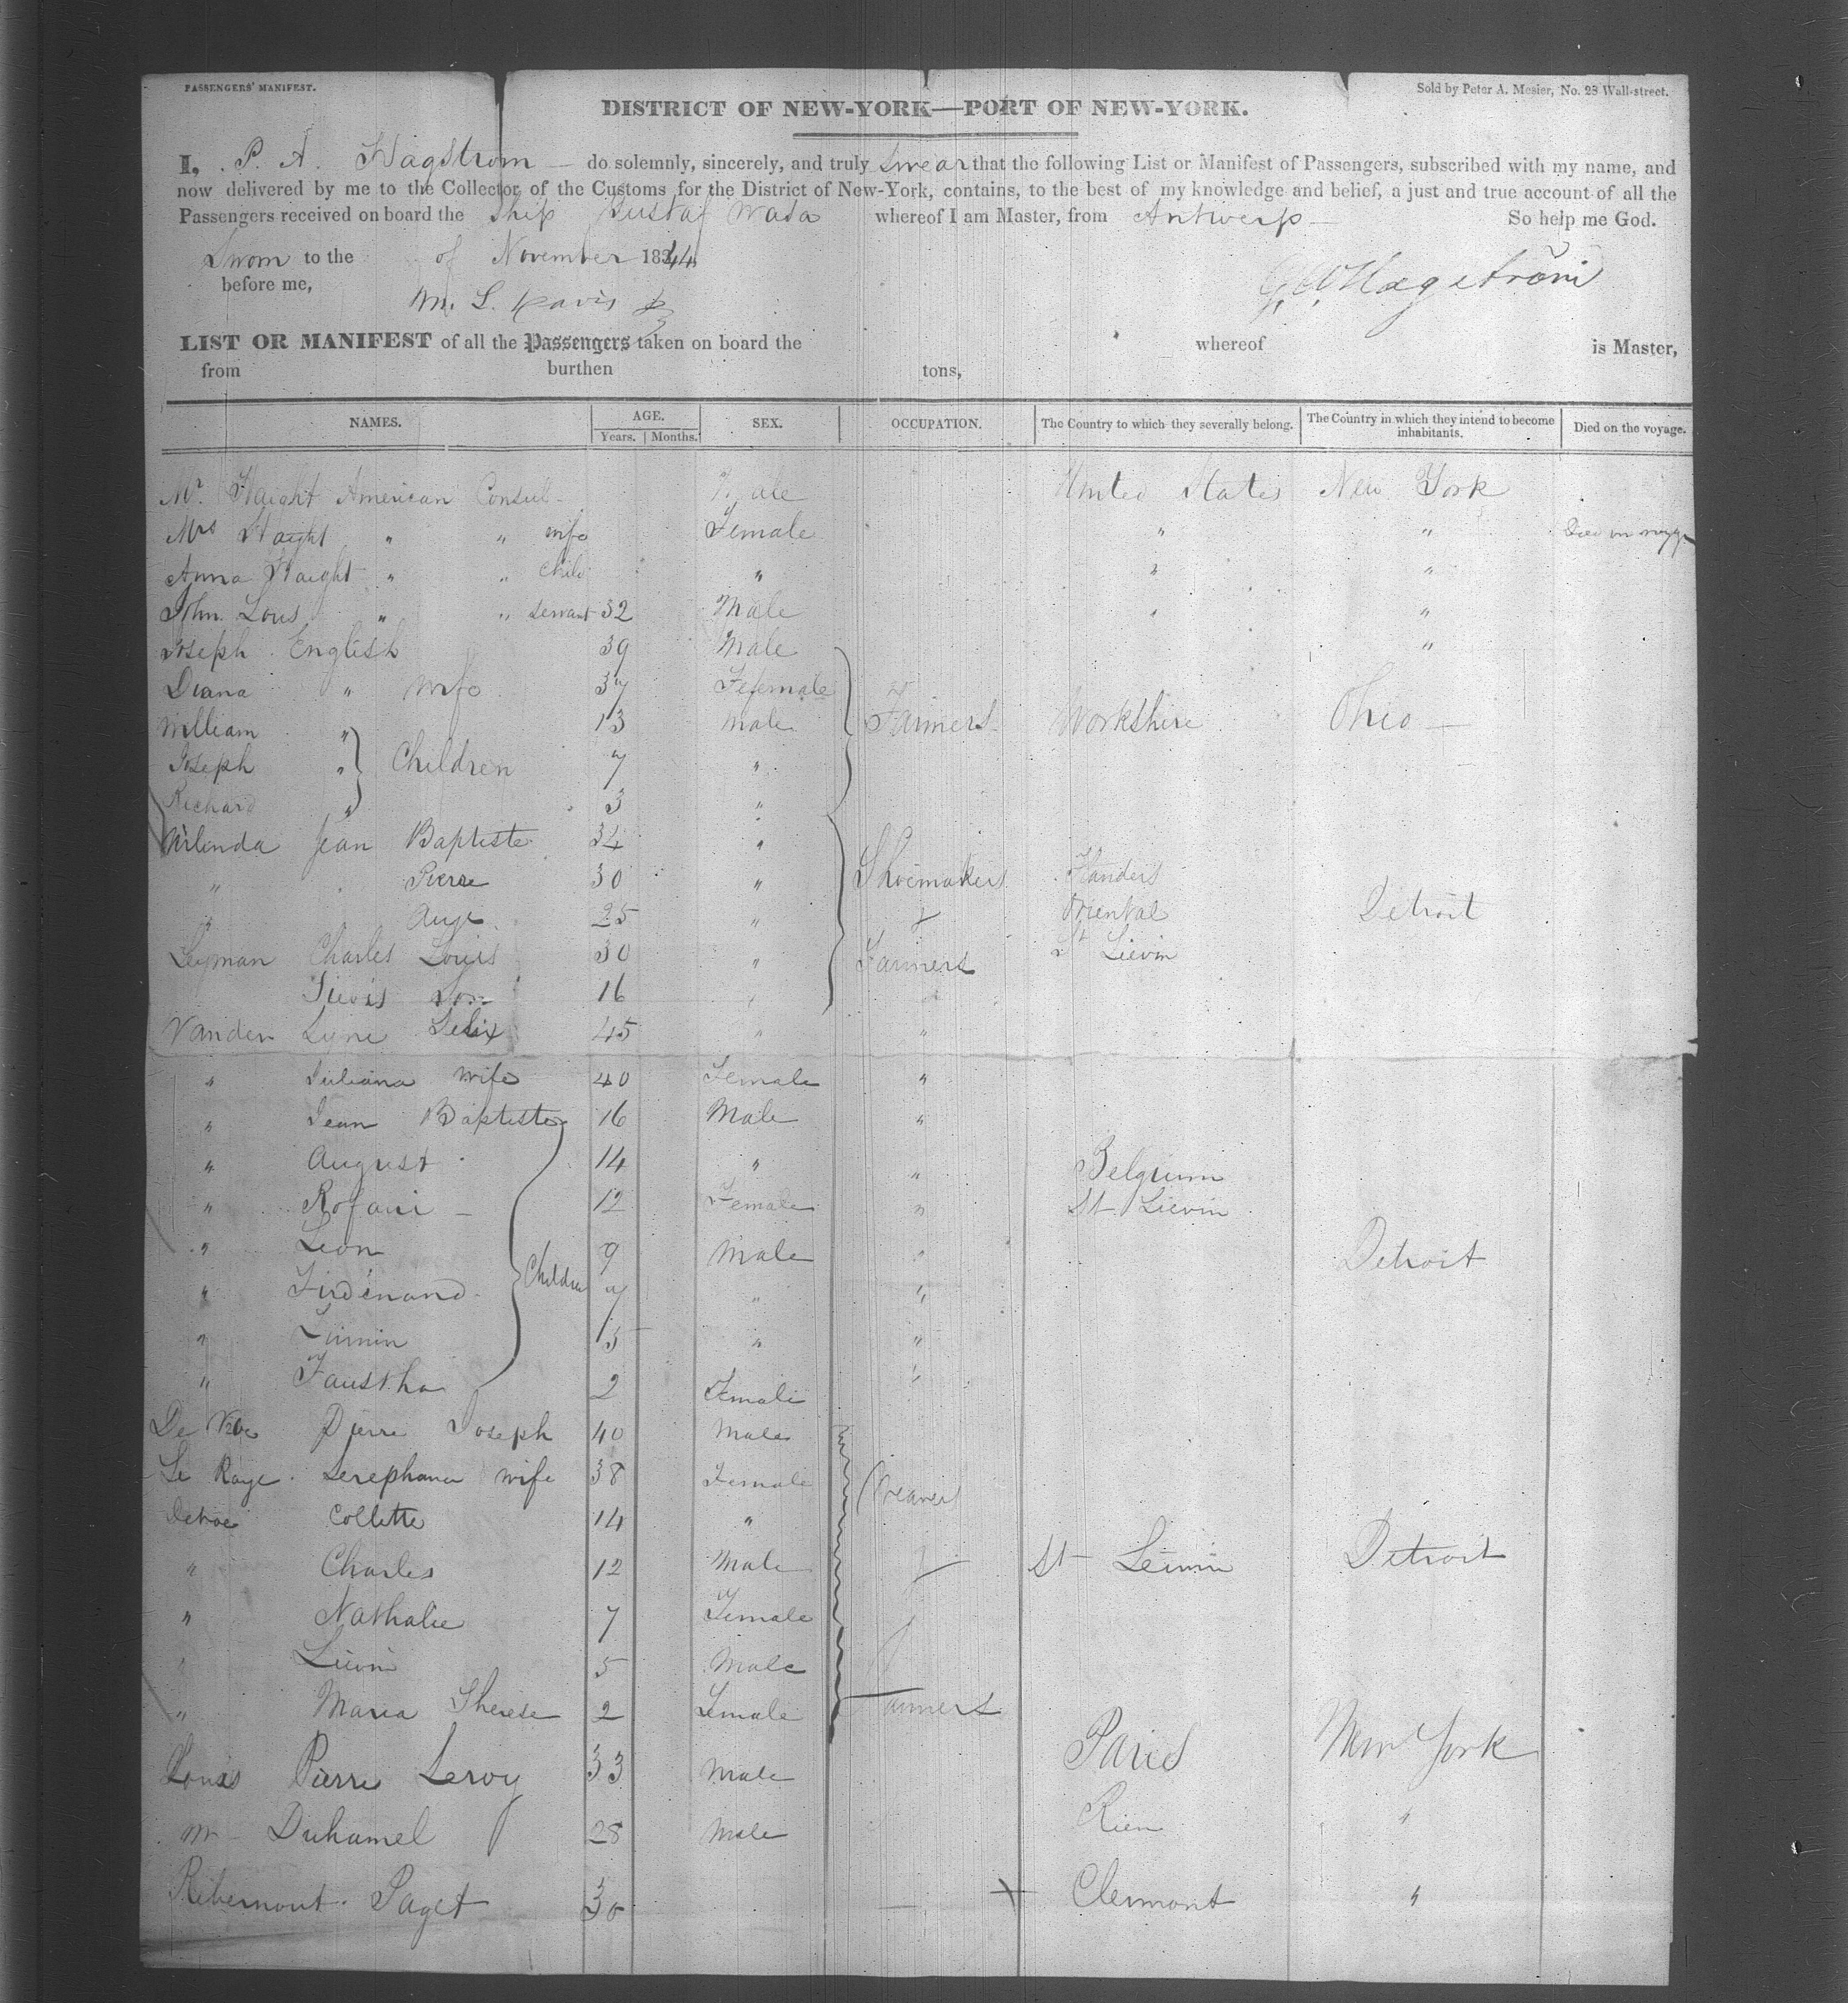 PASSENGERS' MANIFEST.
Sold by Peter A. Mesier, No. 28 Wall-street.
DISTRICT OF NEW-YORK—PORT OF NEW-YORK.
I, P. A. Hagstrom — do solemnly, sincerely, and truly swear that the following List or Manifest of Passengers, subscribed with my name, and
now delivered by me to the Collector of the Customs for the District of New-York, contains, to the best of my knowledge and belief, a just and true account of all the
Passengers received on board the Ship Gustaf Wasa whereof I am Master, from Antwerp — So help me God.
Sworn to the of November 1844
before me,
M. L. Davis
Hagström
LIST OR MANIFEST of all the Passengers taken on board the whereof is Master,
from burthen tons,
NAMES. AGE. Years. Months. SEX. OCCUPATION. The Country to which they severally belong. The Country in which they intend to become inhabitants. Died on the voyage.
Mr. Haight American Consul Male United States New York
Mrs Haight " " wife Female " " Died on voyge
Anna Haight " " Child " " "
John Lous " " servant 32 Male " "
Joseph English 39 Male "
Diana " wife 37 Fefemale
William " 13 male Farmers Yorkshire Ohio —
Joseph " Children 7 "
Richard " 3 "
Milinda Jean Baptiste 34 "
" Pierre 30 " Shoemakers Flanders
" Augt. 25 " & Oriental Detroit
Leyman Charles Louis 30 " Farmers St Lievin
Son 16 "
Vanden Lyne Felix 45 " "
" Juliana wife 40 Female "
" Jean Baptiste 16 Male "
" August 14 " " Belgium
" Rofani — 12 Female " St. Lievin
" Leon 9 Male " Detroit
" Ferdinand Children 7 " "
" 5 " "
" Faustha 2 Female "
De Pierre Joseph 40 Male
Le Raye Serephana wife 38 Female Weavers
Collette 14 "
" Charles 12 Male & St Detroit
" Nathalie 7 Female
" Lievin 5 Male
" Maria Therese 2 Female Farmers
Louis Pierre Leroy 33 Male Paris New York
Mr Duhamel 28 Male Rien "
Ribemont Paget 30 — Clermont "